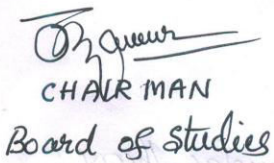 CHAIRMAN
Board of studies